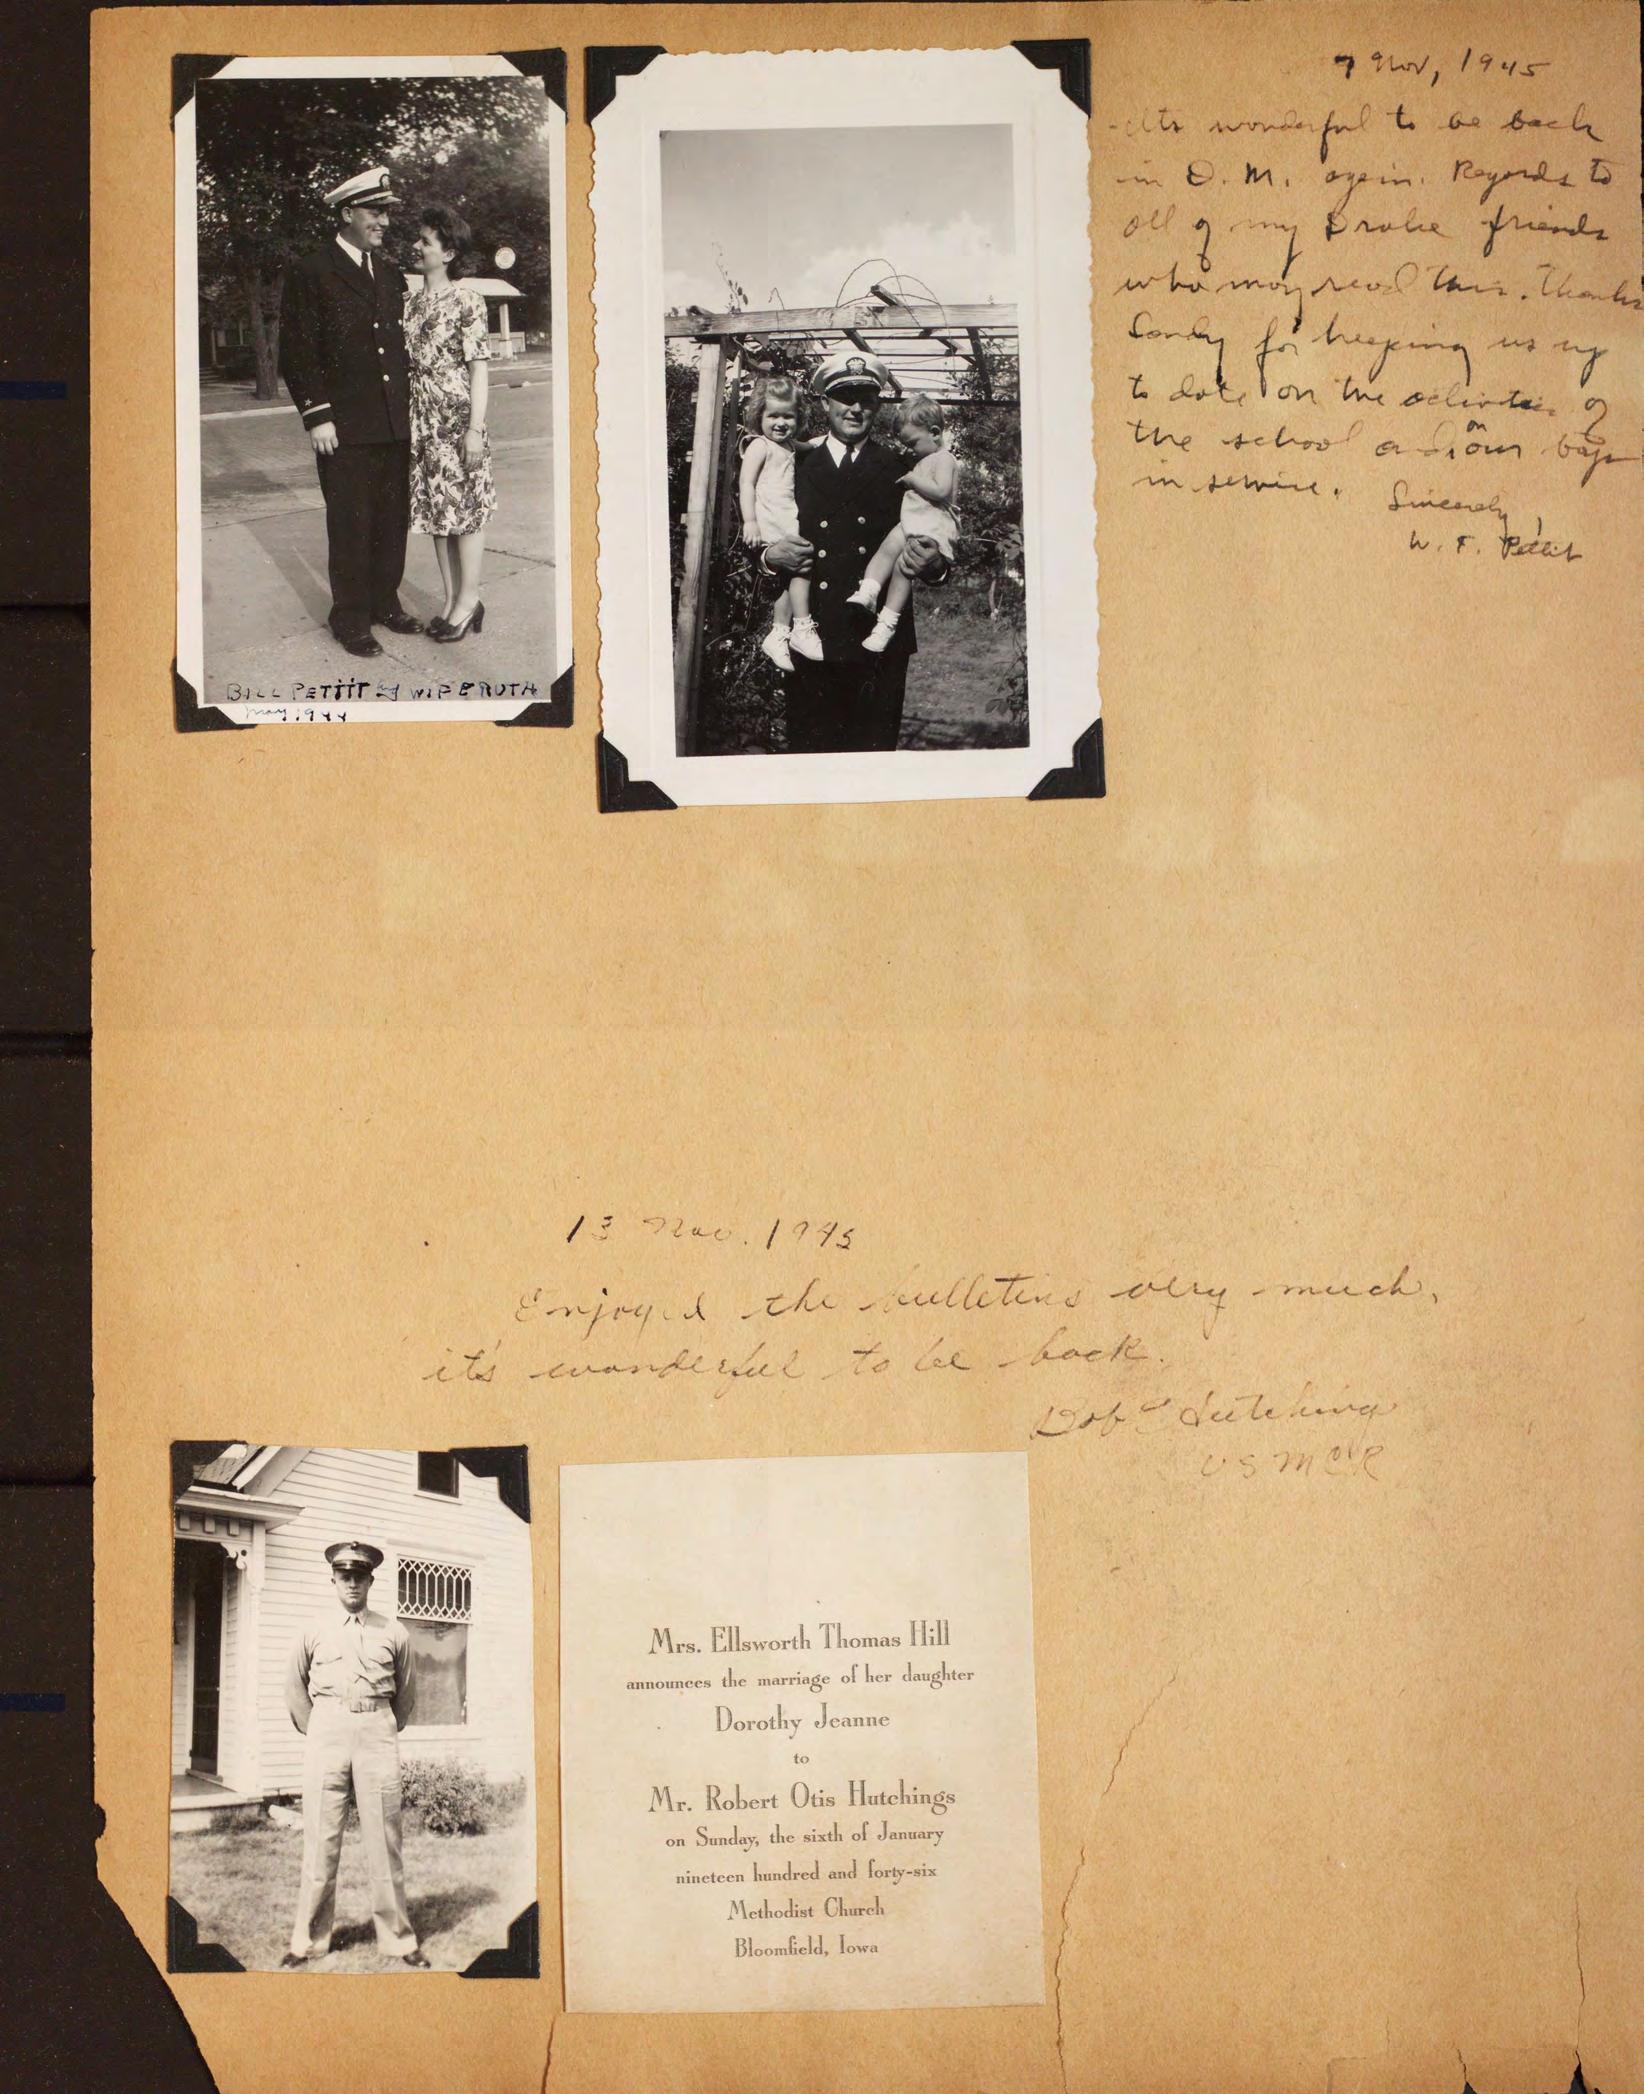 7 Nov, 1945
Its wonderful to be back
in D. M. again. Regards to
all of my Drake friends
who may read this. Thanks
Sandy for keeping us up
to date on the activities of
the school and on our boys
in service.
Sincerely,
W. F. Pettit
BILL PETTIT & WIFE RUTH
May 1944
13 Nov. 1945
Enjoyed the bulletins very much,
it's wonderful to be back.
Bob Hutchings
USMCR
Mrs. Ellsworth Thomas Hill
announces the marriage of her daughter
Dorothy Jeanne
to
Mr. Robert Otis Hutchings
on Sunday, the sixth of January
nineteen hundred and forty-six
Methodist Church
Bloomfield, Iowa